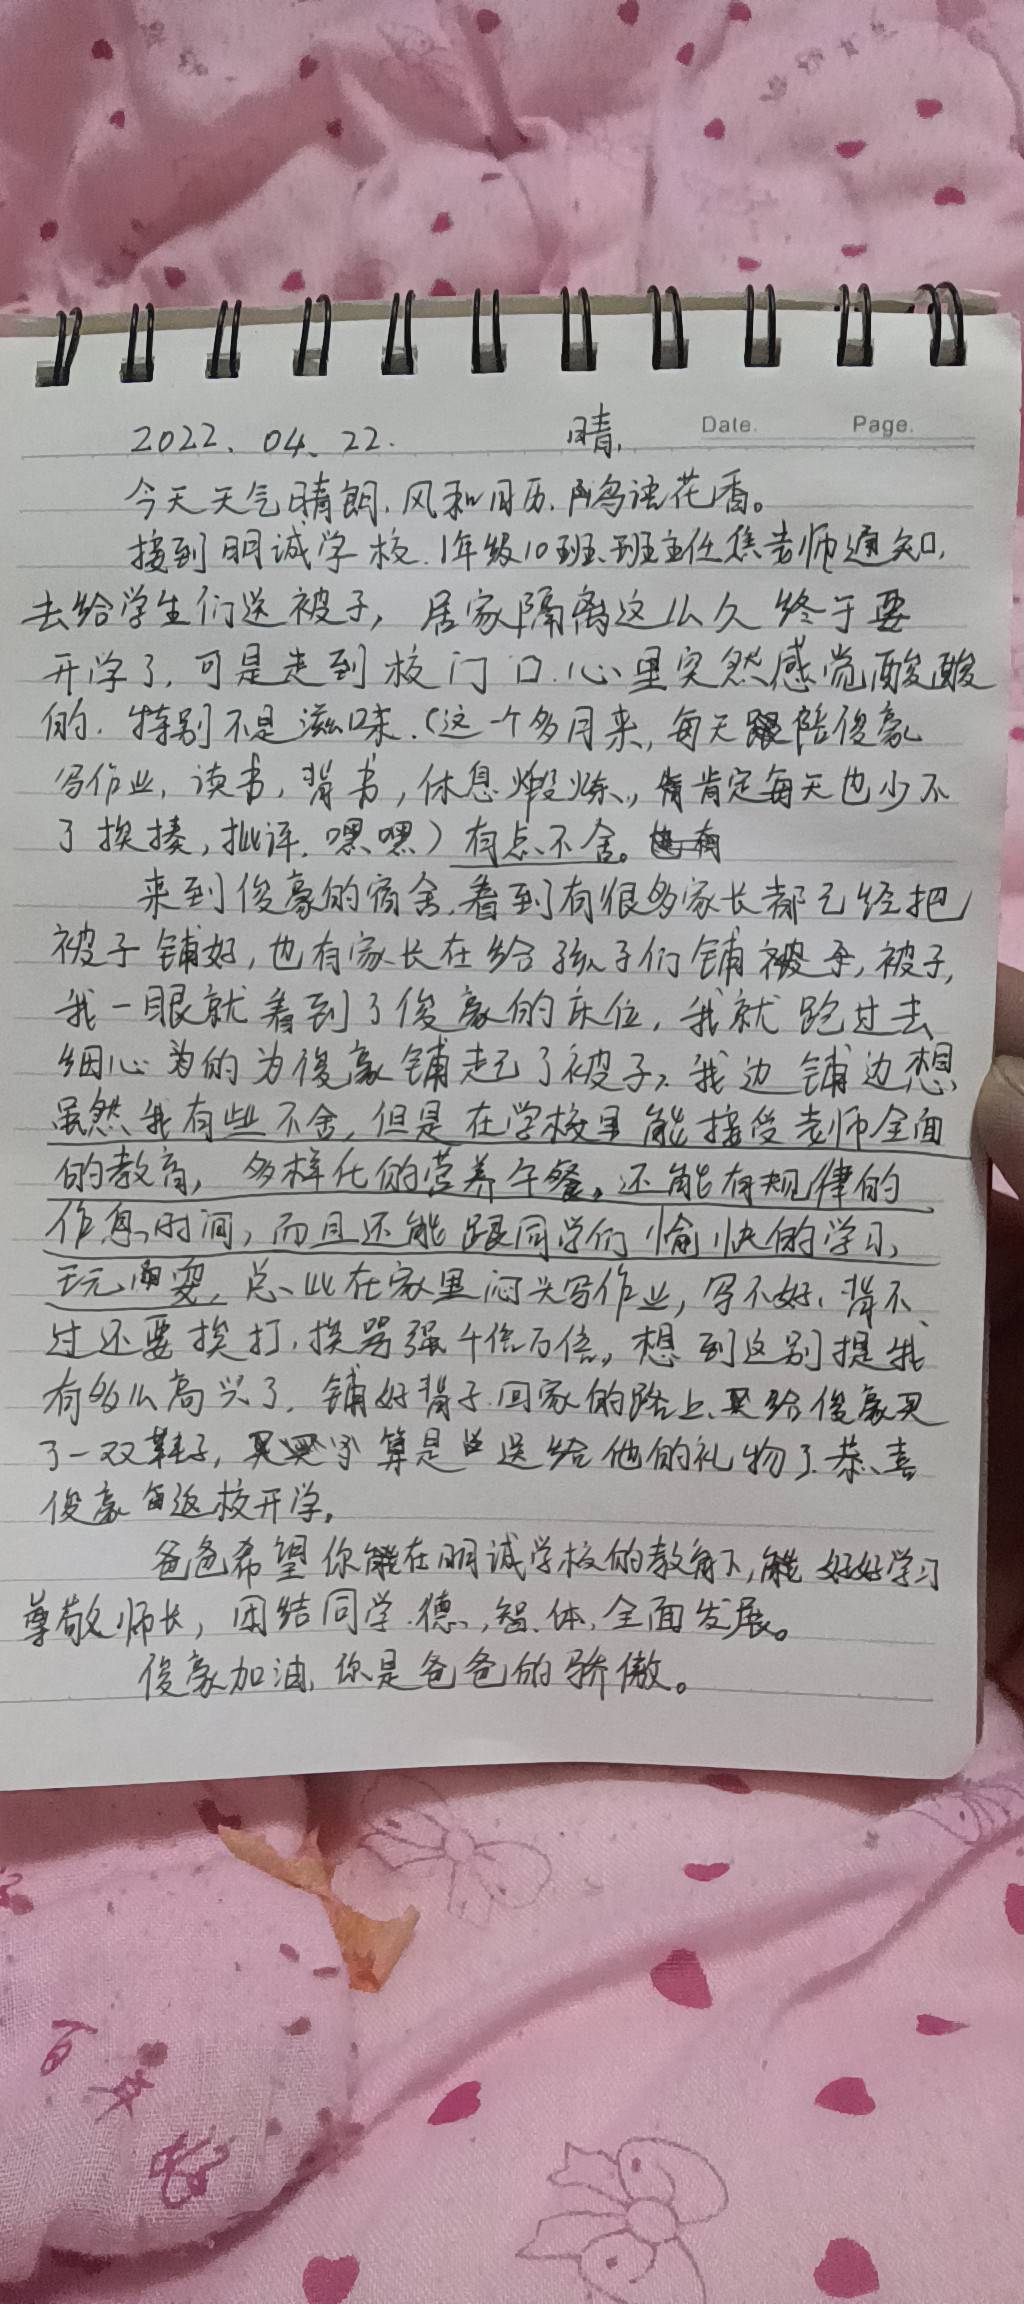 Date. Page.
2022.04.22. 晴.
今天天气晴朗.风和日历.鸟语花香。
接到明诚学校.1年级10班班主任焦老师通知,
去给学生们送被子,居家隔离这么久终于要
开学了,可是走到校门口.心里突然感觉酸酸
的.特别不是滋味.(这一个多月来,每天陪俊豪
写作业,读书,背书,休息煅炼,肯定每天也少不
了挨揍,批评.嘿嘿)有点不舍。
来到俊豪的宿舍.看到有很多家长都已经把
被子铺好,也有家长在给孩子们铺被子,被子,
我一眼就看到了俊豪的床位,我就跑过去
细心的为俊豪铺起了被子,我边铺边想
虽然我有些不舍,但是在学校里能接受老师全面
的教育,多样化的营养午餐,还能有规律的
作息时间,而且还能跟同学们愉快的学习、
玩耍,总比在家里闷头写作业,写不好、背不
过还要挨打,挨骂强千倍万倍,想到这别提我
有多么高兴了.铺好背子回家的路上、给俊豪买
了一双鞋子,算是送给他的礼物了.恭喜
俊豪返校开学,
爸爸希望你能在明诚学校的教育下,能好好学习
尊敬师长,团结同学.德,智.体.全面发展。
俊豪加油,你是爸爸的骄傲。